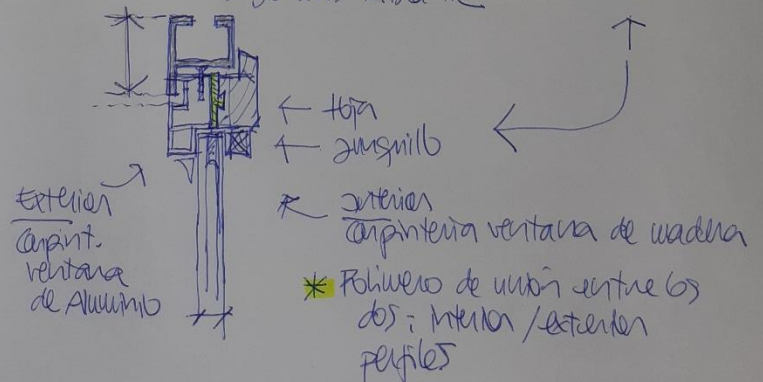 ← Hoja
← junquillo
Exterior
Carpint.
ventana
de Aluminio
interior
Carpintería ventana de madera
* Polimero de unión entre los
dos; interior / exterior
perfiles